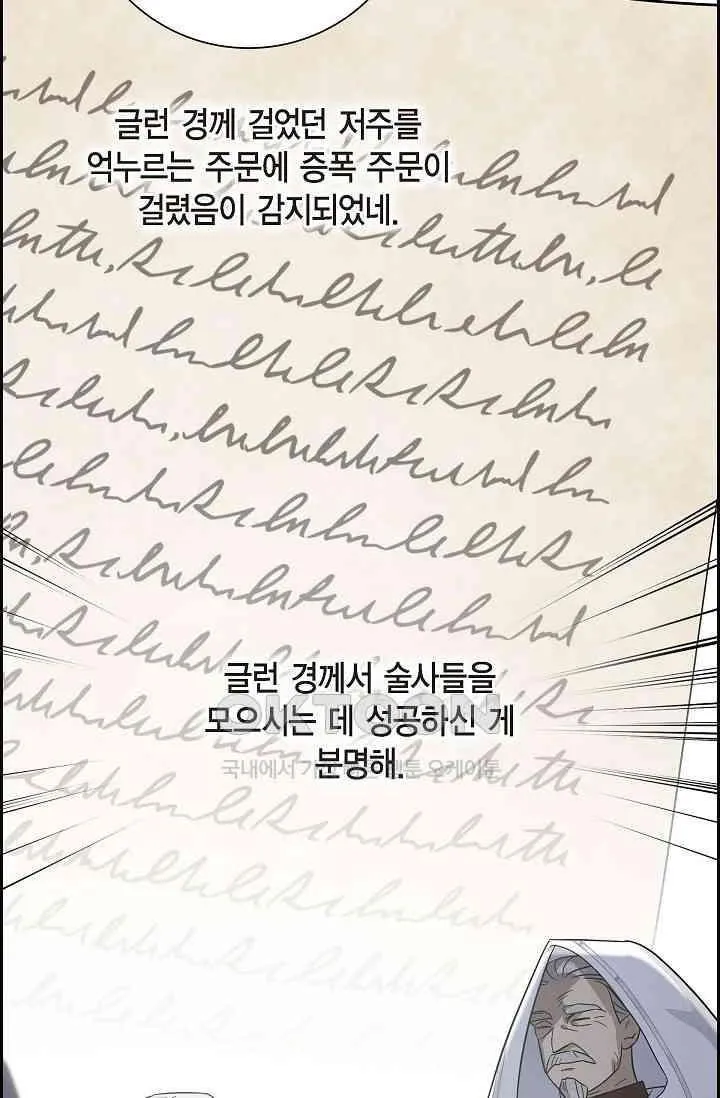 글런 경께 걸었던 저주를
억누르는 주문에 증폭 주문이
걸렸음이 감지되었네.
글런 경께서 술사들을
모으시는 데 성공하신 게
분명해.
OKTOON
국내에서 웹툰 오케이툰